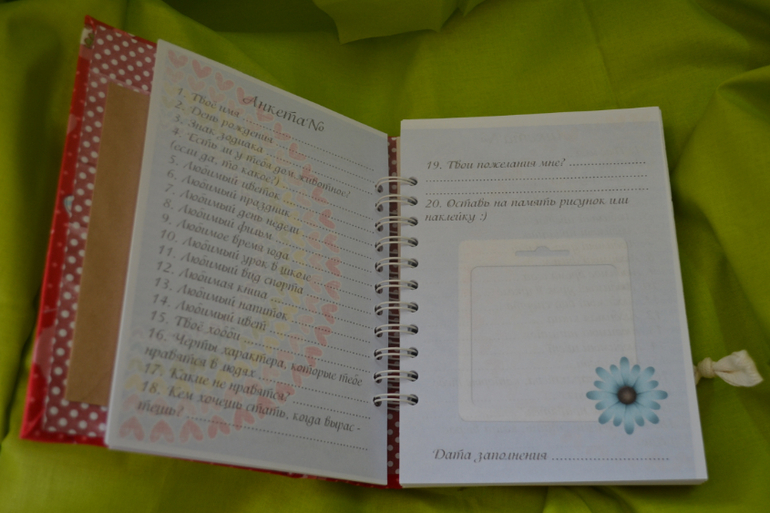 Анкета №
1. Твоё имя ..............................
2. День рождения ..............................
3. Знак зодиака ..............................
4. Есть ли у тебя дом. животное?
(если да, то какое?) ..............................
5. Любимый цветок ..............................
6. Любимый праздник ..............................
7. Любимый день недели ..............................
8. Любимый фильм ..............................
9. Любимое время года ..............................
10. Любимый урок в школе ..............................
11. Любимый вид спорта ..............................
12. Любимая книга ..............................
13. Любимый напиток ..............................
14. Любимый цвет ..............................
15. Твоё хобби ..............................
16. Черты характера, которые тебе
нравятся в людях ..............................
17. Какие не нравятся? ..............................
18. Кем хочешь стать, когда вырас -
тешь? ..............................
19. Твои пожелания мне? ..............................
............................................................
............................................................
20. Оставь на память рисунок или
наклейку :)
Дата заполнения ..............................